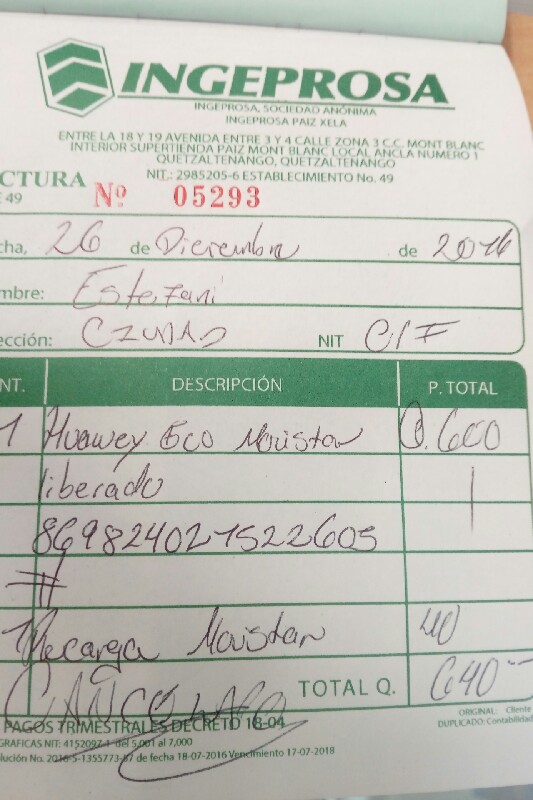 INGEPROSA
INGEPROSA, SOCIEDAD ANÓNIMA
INGEPROSA PAIZ XELA
ENTRE LA 18 Y 19 AVENIDA ENTRE 3 Y 4 CALLE ZONA 3 C.C. MONT BLANC
INTERIOR SUPERTIENDA PAIZ MONT BLANC LOCAL ANCLA NUMERO 1
QUETZALTENANGO, QUETZALTENANGO
NIT.: 2985205-6 ESTABLECIMIENTO No. 49
CTURA
E 49 Nº 05293
cha, 26 de Diciembre de 2016
mbre: Estefani
ección: CIUDAD NIT C/F
NT. DESCRIPCIÓN P. TOTAL
1 Huawey Eco Movistar Q.600
liberado
869824027522605
#
1 Recarga Movistar 40
TOTAL Q. 640
PAGOS TRIMESTRALES DECRETO 18-04
ORIGINAL: Cliente
DUPLICADO: Contabilidad
GRAFICAS NIT: 4152097-1 del 5,001 al 7,000
lución No. 2016-5-1355773-87 de fecha 18-07-2016 Vencimiento 17-07-2018